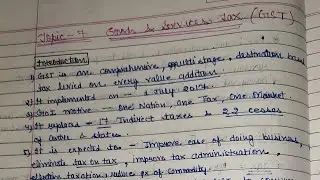 Topic - 7 Goods & Services Tax (GST)
Introduction
1) GST is one comprehensive, multi stage, destination based
tax levied on every value addition.
2) It implemented on 1 July 2017.
3) Motive - One Nation, One Tax, One Market
4) It replaces 17 Indirect taxes & 22 cesses
of centre & states.
5) It is expected to - Improve ease of doing business,
eliminate tax on tax, improve tax administration,
effective taxation, reduce px of commodity.